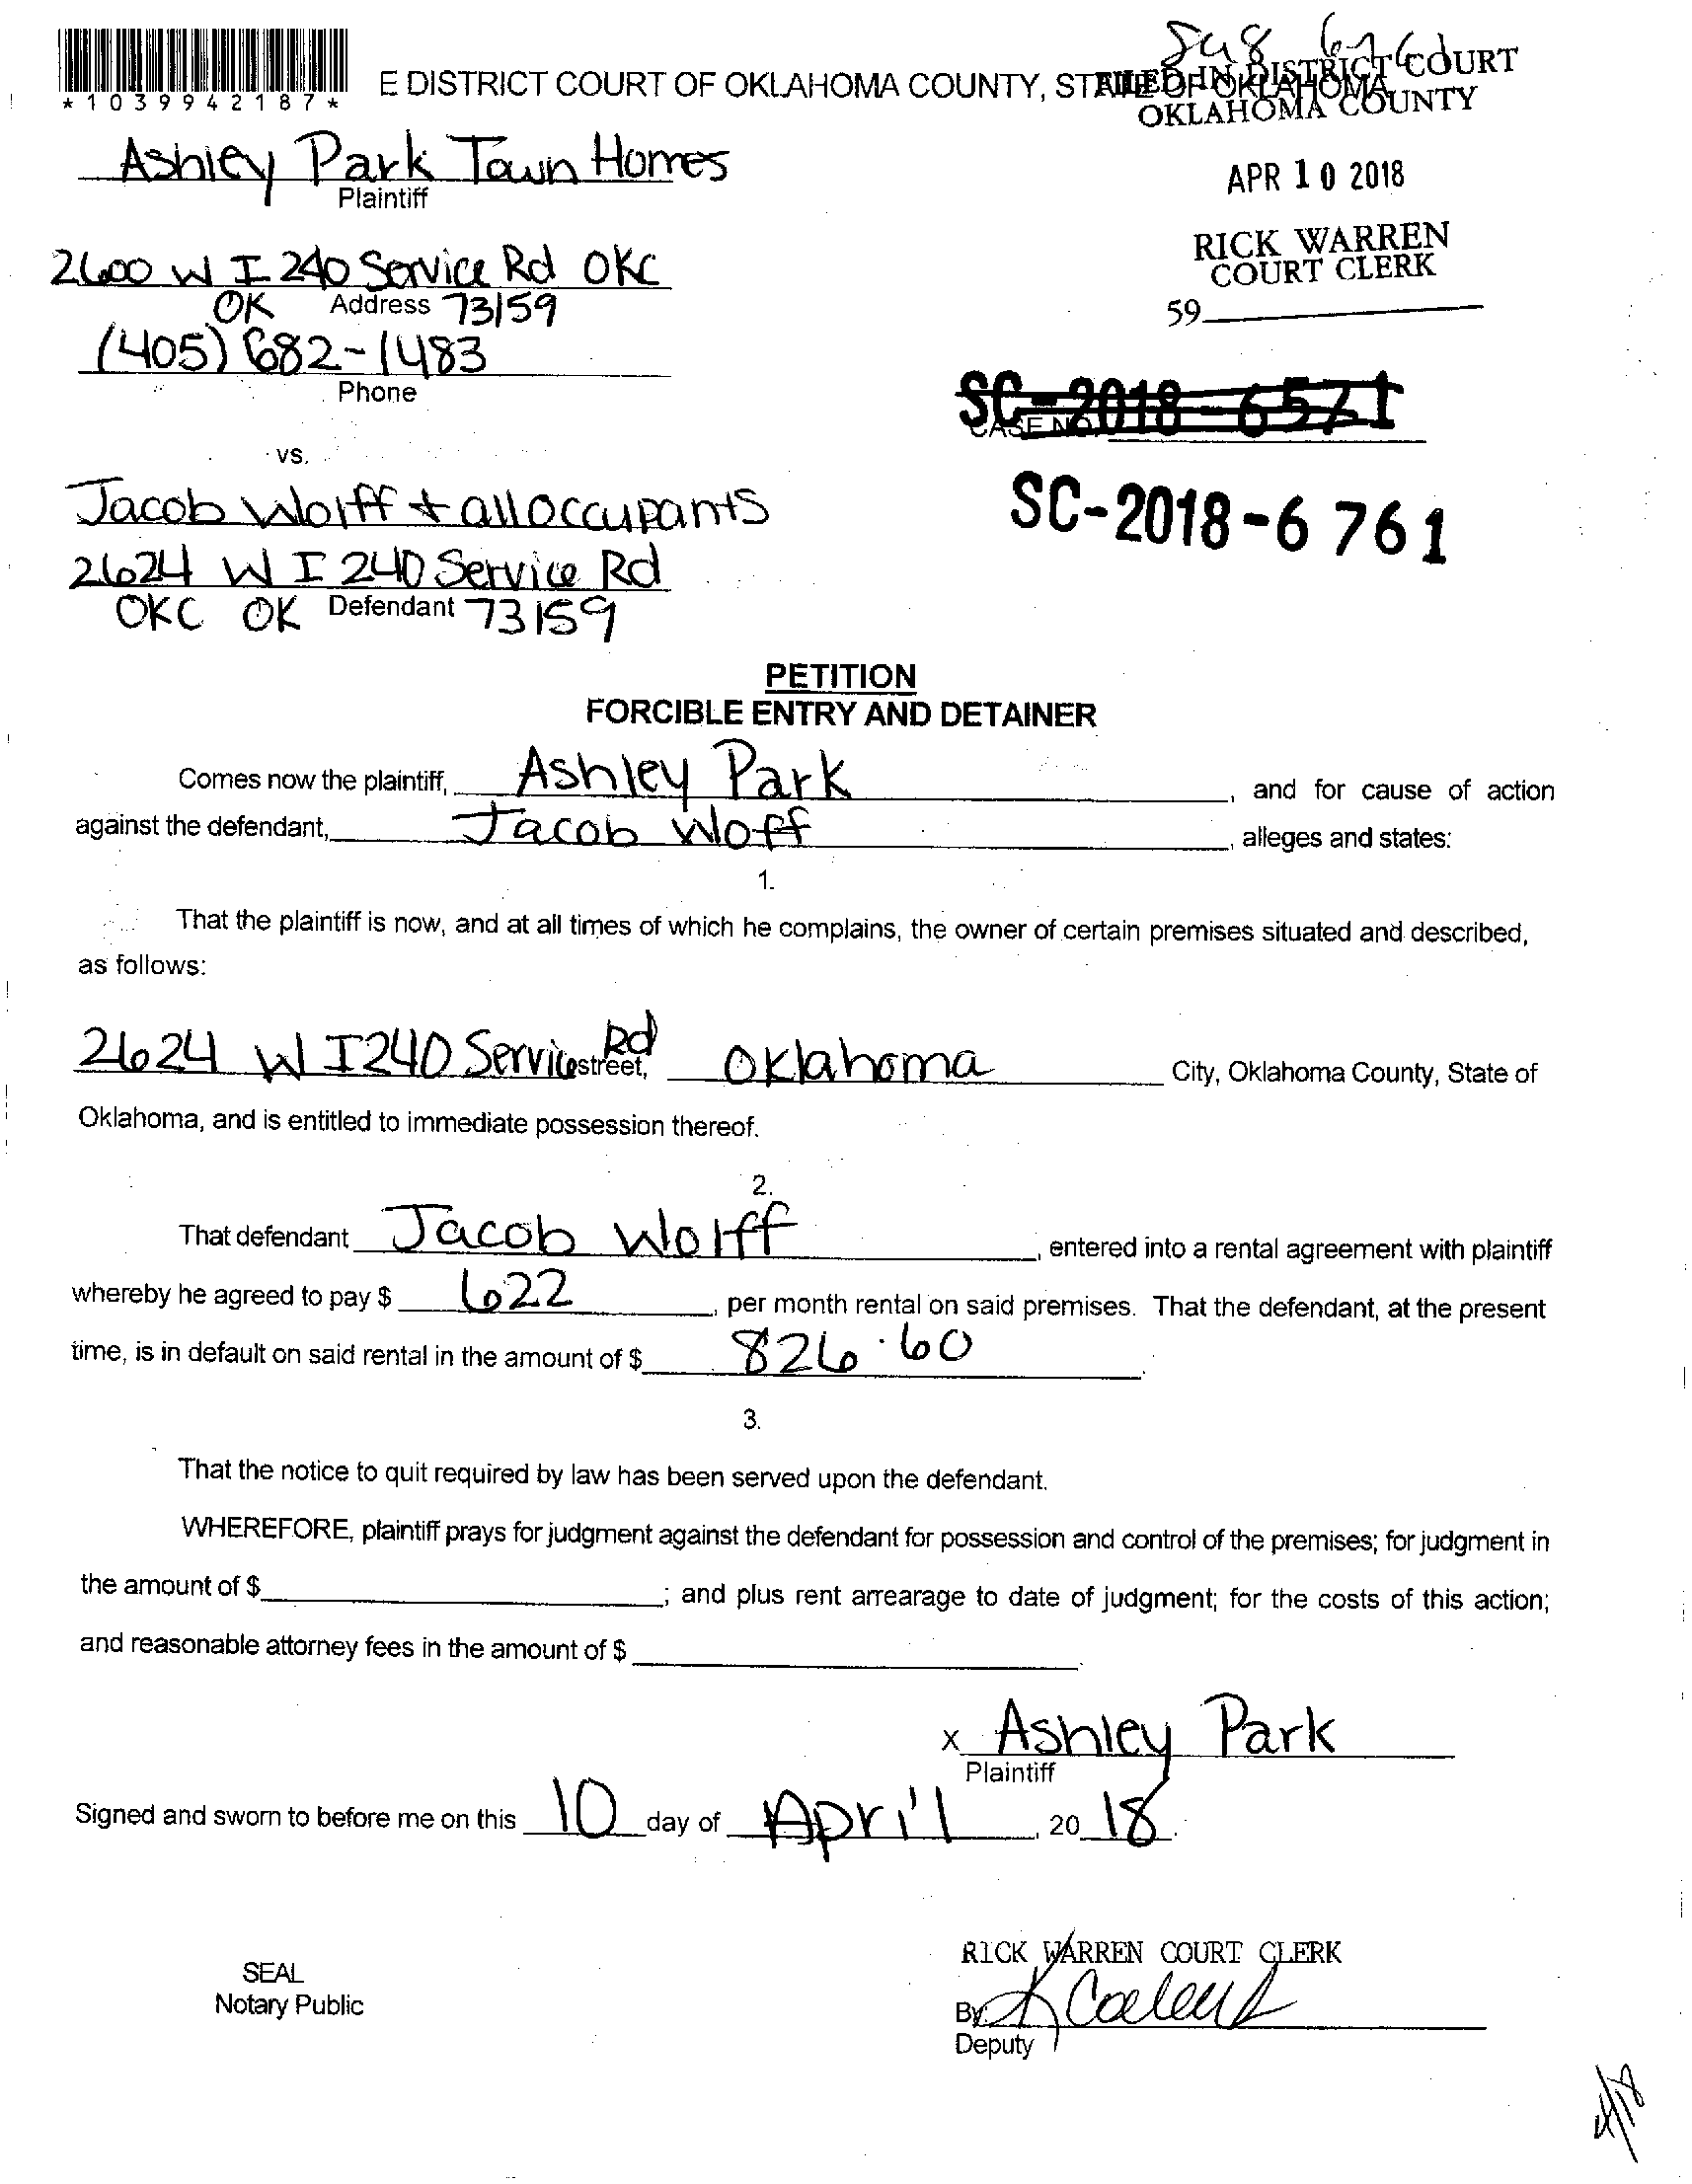 E DISTRICT COURT OF OKLAHOMA COUNTY, STATE OF OKLAHOMA
*1039942187*
FILED IN DISTRICT COURT
OKLAHOMA COUNTY
Ashley Park Town Homes
Plaintiff
APR 10 2018
RICK WARREN
COURT CLERK
59
2600 W I 240 Service Rd OKC
OK Address 73159
(405) 682-1483
Phone
SC-2018-6571
CASE NO.
vs.
SC-2018-6761
Jacob Wolff + all occupants
2624 W I 240 Service Rd
OKC OK Defendant 73159
PETITION
FORCIBLE ENTRY AND DETAINER
Comes now the plaintiff, Ashley Park, and for cause of action
against the defendant, Jacob Woff, alleges and states:
1.
That the plaintiff is now, and at all times of which he complains, the owner of certain premises situated and described,
as follows:
2624 W I240 Service Rd street, Oklahoma City, Oklahoma County, State of
Oklahoma, and is entitled to immediate possession thereof.
2.
That defendant Jacob Wolff, entered into a rental agreement with plaintiff
whereby he agreed to pay $ 622, per month rental on said premises. That the defendant, at the present
time, is in default on said rental in the amount of $ 826.60.
3.
That the notice to quit required by law has been served upon the defendant.
WHEREFORE, plaintiff prays for judgment against the defendant for possession and control of the premises; for judgment in
the amount of $ ; and plus rent arrearage to date of judgment; for the costs of this action;
and reasonable attorney fees in the amount of $ .
x Ashley Park
Plaintiff
Signed and sworn to before me on this 10 day of April, 20 18.
RICK WARREN COURT CLERK
SEAL
Notary Public
By
Deputy
4/18